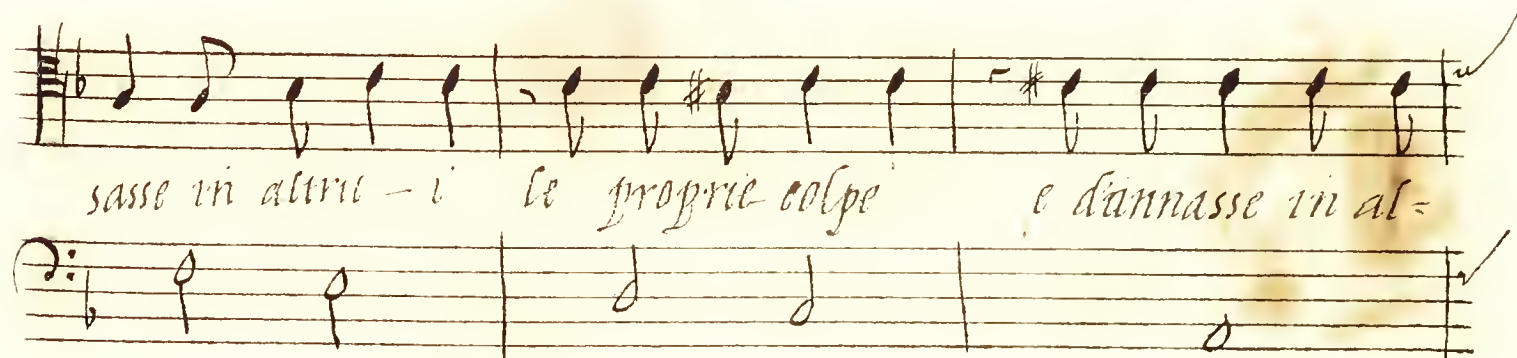 sasse in altru - i le proprie colpe e dannasse in al=